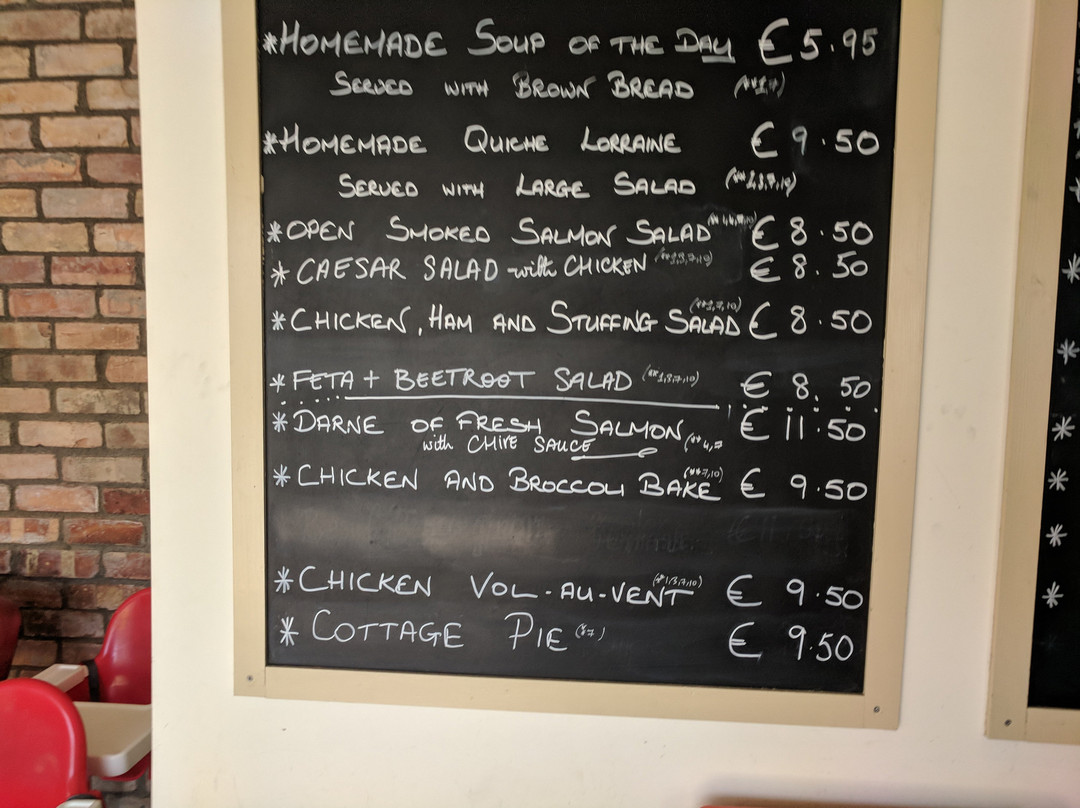 *HOMEMADE SOUP OF THE DAY €5.95
SERVED WITH BROWN BREAD
*HOMEMADE QUICHE LORRAINE €9.50
SERVED WITH LARGE SALAD
*OPEN SMOKED SALMON SALAD €8.50
*CAESAR SALAD with CHICKEN €8.50
*CHICKEN, HAM AND STUFFING SALAD (**1,7,10) €8.50
*FETA + BEETROOT SALAD €8.50
*DARNE OF FRESH SALMON €11.50
with CHIVE SAUCE
*CHICKEN AND BROCCOLI BAKE (**7,10) €9.50
*CHICKEN VOL-AU-VENT €9.50
*COTTAGE PIE (*7) €9.50